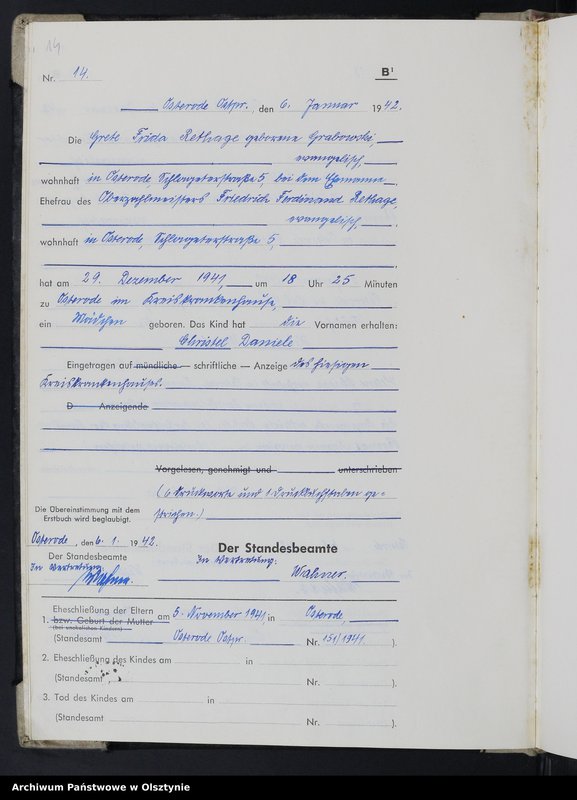 14
Nr. 14. B¹
Osterode Ostpr., den 6. Januar 1942.
Die Grete Frida Rethage geborene Grabowski,
evangelisch,
wohnhaft in Osterode, Schlageterstraße 5, bei dem Ehemanne,
Ehefrau des Oberzahlmeisters Friedrich Ferdinand Rethage,
evangelisch,
wohnhaft in Osterode, Schlageterstraße 5,
hat am 29. Dezember 1941, um 18 Uhr 25 Minuten
zu Osterode im Kreiskrankenhause,
ein Mädchen geboren. Das Kind hat die Vornamen erhalten:
Christel Daniele
Eingetragen auf mündliche — schriftliche — Anzeige des hiesigen
Kreiskrankenhauses.
D Anzeigende
Vorgelesen, genehmigt und unterschrieben
(6 Druckworte und 1 Druckbuchstaben ge-
strichen.)
Die Übereinstimmung mit dem
Erstbuch wird beglaubigt.
Osterode, den 6. 1. 1942.
Der Standesbeamte
Der Standesbeamte
In Vertretung:
In Vertretung:
Wahner.
Wahner.
Eheschließung der Eltern
1. bzw. Geburt der Mutter am 5. November 1941 in Osterode,
(bei unehelichen Kindern)
(Standesamt Osterode Ostpr. Nr. 151/1941 ).
2. Eheschließung des Kindes am in
(Standesamt Nr. ).
3. Tod des Kindes am in
(Standesamt Nr. ).
Archiwum Państwowe w Olsztynie